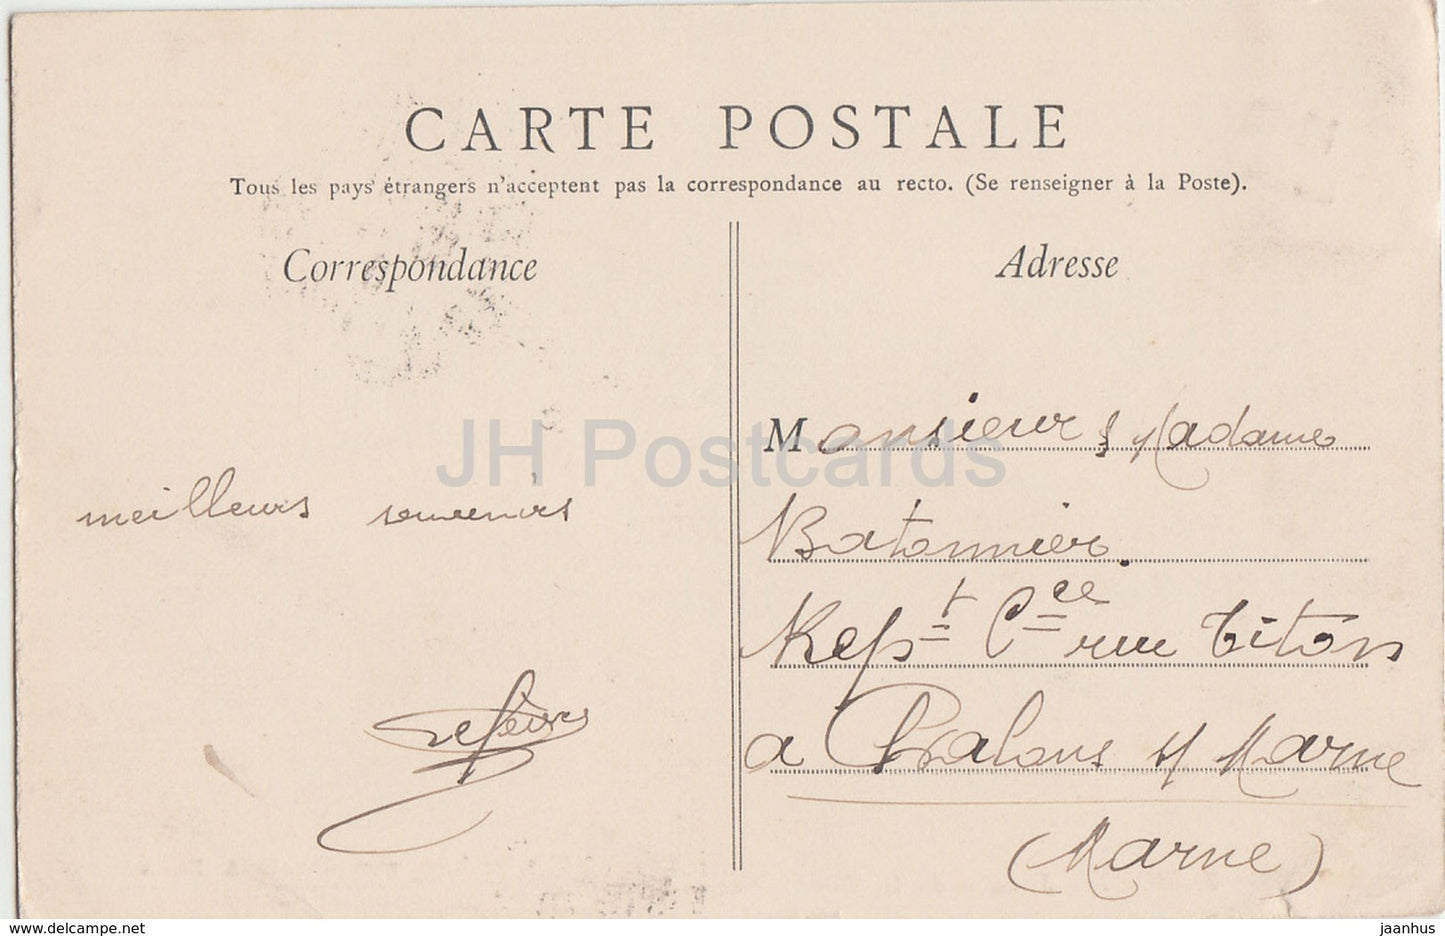 CARTE POSTALE
Tous les pays étrangers n'acceptent pas la correspondance au recto. (Se renseigner à la Poste).
Correspondance
meilleurs souvenirs
Lefèvre
Adresse
Monsieur & Madame
Batonnier
Rep^t C^ce rue Titon
a Chalons s/ Marne
(Marne)
JH Postcards
www.delcampe.net
jaanhus